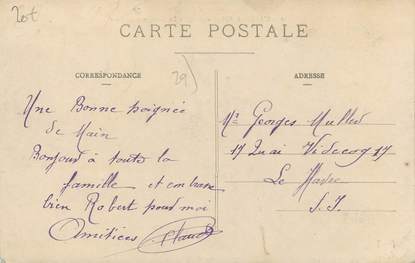 20t
CARTE POSTALE
CORRESPONDANCE
29)
ADRESSE
Une Bonne poignée
de Main
Bonjour à toute la
famille et embrasse
bien Robert pour moi
Amitiées
Mr Georges Muller
17 Quai Videcoq 17
Le Havre
S. I.